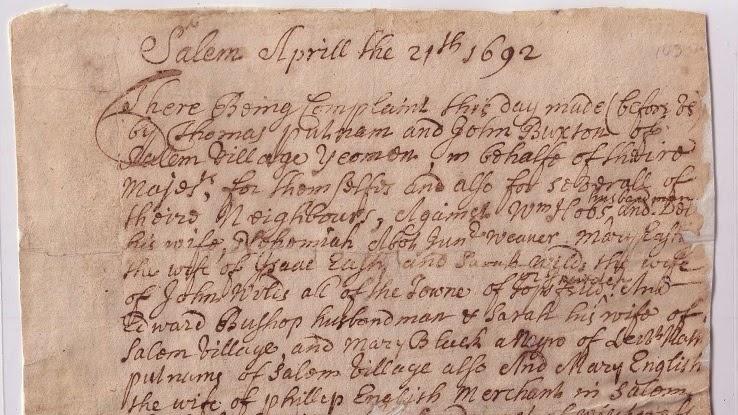 Salem Aprill the 21th 1692
There Being Complaint this day made (before us)
by Thomas putnam and John Buxton of
Salem Village Yeomen, in behalfe of theire
Majests, for themselfes and also for severall of
theire Neighbours, Against Wm Hobs husbandman and Del
his wife, Nehemiah Abot junr weaver, Mary Easty
the wife of Isaac Easty and Sarah Wilds the wife
of John Wilds all of the Towne of Topsfield, And
Edward Bushop husbandman & Sarah his wife of
Salem Village, and Mary Black a Negro of Leut Nath
putnams of Salem Village also And Mary English
the wife of phillip English Merchant in Salem